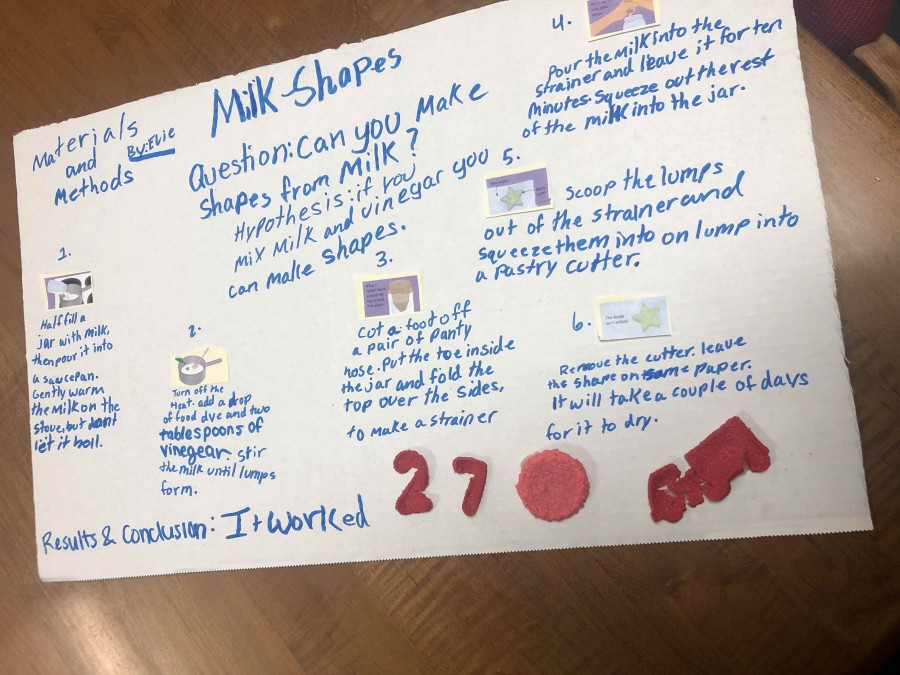 Milk-Shapes
Materials
and
Methods
By: Evie
Question: Can you Make
shapes from Milk?
Hypothesis: if you
mix Milk and vinegar you
can make shapes.
1.
Half fill a
jar with milk,
then pour it into
a saucepan.
Gently warm
the milk on the
stove, but dont
let it boil.
2.
Turn off the
Heat. add a drop
of food dye and two
tablespoons of
vinegear. stir
the milk until lumps
form.
3.
Cut a foot off
a pair of Panty
hose. Put the toe inside
the jar and fold the
top over the sides,
to make a strainer
4.
Pour the milk into the
strainer and leave it for ten
minutes. Squeeze out the rest
of the milk into the jar.
5.
Scoop the lumps
out of the strainer and
squeeze them into on lump into
a Pastry cutter.
6.
Remove the cutter. leave
the shape on some paper.
It will take a couple of days
for it to dry.
Results & Conclusion: It worked
27